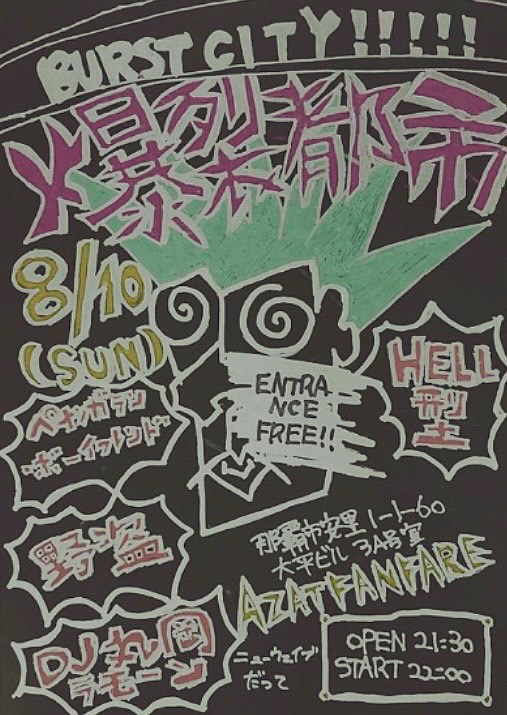 BURST CITY!!!!!
爆裂都市
8/10
(SUN)
ENTRA
NCE
FREE!!
HELL
型
ペナンガラン
ボーイフレンド
野盗
DJ丸岡
ラモーン
那覇市安里1-1-60
太平ビル 3AB室
AZATFANFARE
ニューウェイブ
だって
OPEN 21:30
START 22:00